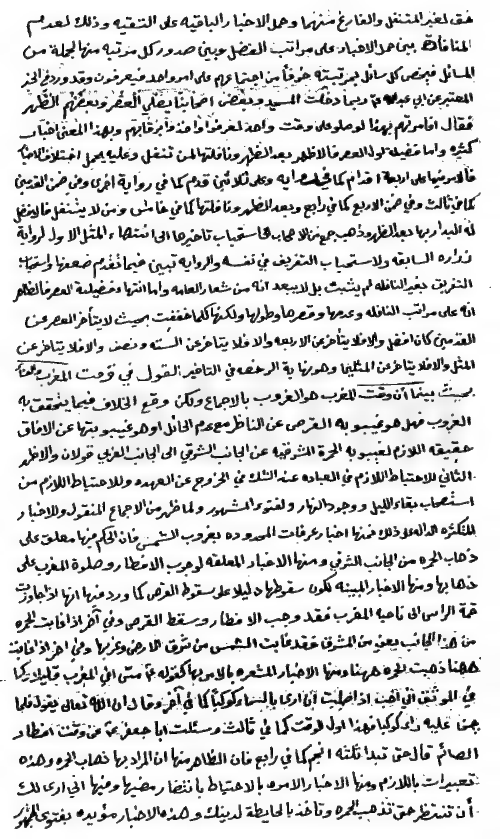 لغير المتنفل والفارغ منها وحمل الاخبار الباقيه على التقيه وذلك لعدم
المنافاة بين حمل الاخبار على مراتب الفضل وبين صدور كل مرتبه منها لجملة من
المسائل فيختص كل سائل بمرتبته خوفا من اجتماعهم على امر واحد فيعرفون وقد ورد في الخبر
المعتبر عن ابي عبد الله ربما دخلت المسجد وبعض اصحابنا يصلي العصر وبعضهم الظهر
فقال انا امرتهم بهذا لو صلوا على وقت واحد لعرفوا فاخذوا برقابهم وبهذا المعنى اخبار
كثيره واما فضيلة العصر فالاظهر بعد الظهر ونافلتها لمن تنفل وعليه يحمل اختلاف الاخبار
فالامر بها على اربعة اقدام كما في روايه وعلى ثلاثين قدم كما في رواية اخرى وفي ضمن القدمين
كما في ثالث وفي ضمن الاربع كما في رابع وبعد الظهر ونافلتها كما في خامس ومن لا يتنفل فالافضل
له البدار بها بعد الظهر وذهب جمع من الاصحاب الى استحباب تاخيرها الى انتهاء المثل الاول لرواية
زراره السابقه ولاستحباب التفريق في نفسه والروايه تبين فيما تقدم ضعفها واستحباب
التفريق بغير النافله لم يثبت بل لا يبعد انه من شعار العامه واما انتهاء فضيلة العصر فالظاهر
انه على مراتب النافله وعدمها وقصرها وطولها ولكنها كلما خففت بحيث لا يتاخر العصر عن
القدمين كان افضل والا فلا يتاخر عن الاربعه والا فلا يتاخر عن السته ونصف والا فلا يتاخر عن
المثل والا فلا يتاخر عن المثلين وهو نهاية الرخصه في التاخير القول في وقت المغرب
بحيث بينما ان وقت المغرب هو الغروب بالاجماع ولكن وقع الخلاف فيما يتحقق به
الغروب فهل هو غيبوبة القرص عن الناظر مع عدم الحائل او هو غيبوبتها عن الافاق
حقيقه اللازم لغيبوبة الحمرة المشرقيه عن الجانب الشرقي الى الجانب الغربي قولان والاظهر
الثاني للاحتياط اللازم في العباده عند الشك في الخروج عن العهده وللاحتياط اللازم من
استصحاب بقاء الليل ووجود النهار ولفتوى المشهور ولما ظهر من الاجماع المنقول وللاخبار
المتكثره الداله على ذلك فمنها اخبار عرفات المحدوده بغروب الشمس فان الحكم فيها معلق على
ذهاب الحمره من الجانب الشرقي ومنها الاخبار المعلقه لوجوب الافطار وصلوة المغرب على
ذهابها ومنها الاخبار المبينه لكون سقوطها دليلا على سقوط القرص كما ورد فيها انها اذا جاوزت
قمة الراس الى ناحية المغرب فقد وجب الافطار وسقط القرص وفي آخر اذا غابت الحمره
من هذا الجانب يعني من المشرق فقد غابت الشمس من شرق الارض وغربها وفي اخر اذا غابت
ههنا ذهبت الحمره ههنا ومنها الاخبار المشعره بالامر بها كقوله مسّي في المغرب قليلا وكما
في الموثق اني احب اذا صليت ان ارى بالسماء كوكبا كما في آخر وقال ان الله تعالى يقول فلما
جن عليه راى كوكبا فهذا اول الوقت كما في ثالث وسئلت ابا جعفر عن وقت افطار
الصائم قال حتى تبدو ثلثة انجم كما في رابع فان الظاهر منها ان المراد بها ذهاب الحمره وهذه
تعبيرات باللازم ومنها الاخبار الامره بالاحتياط بانتظار مضيها وفيها اني ارى لك
أن تنتظر حتى تذهب الحمره وتاخذ بالحايطة لدينك وهذه الاخبار مؤيده بفتوى المشهور